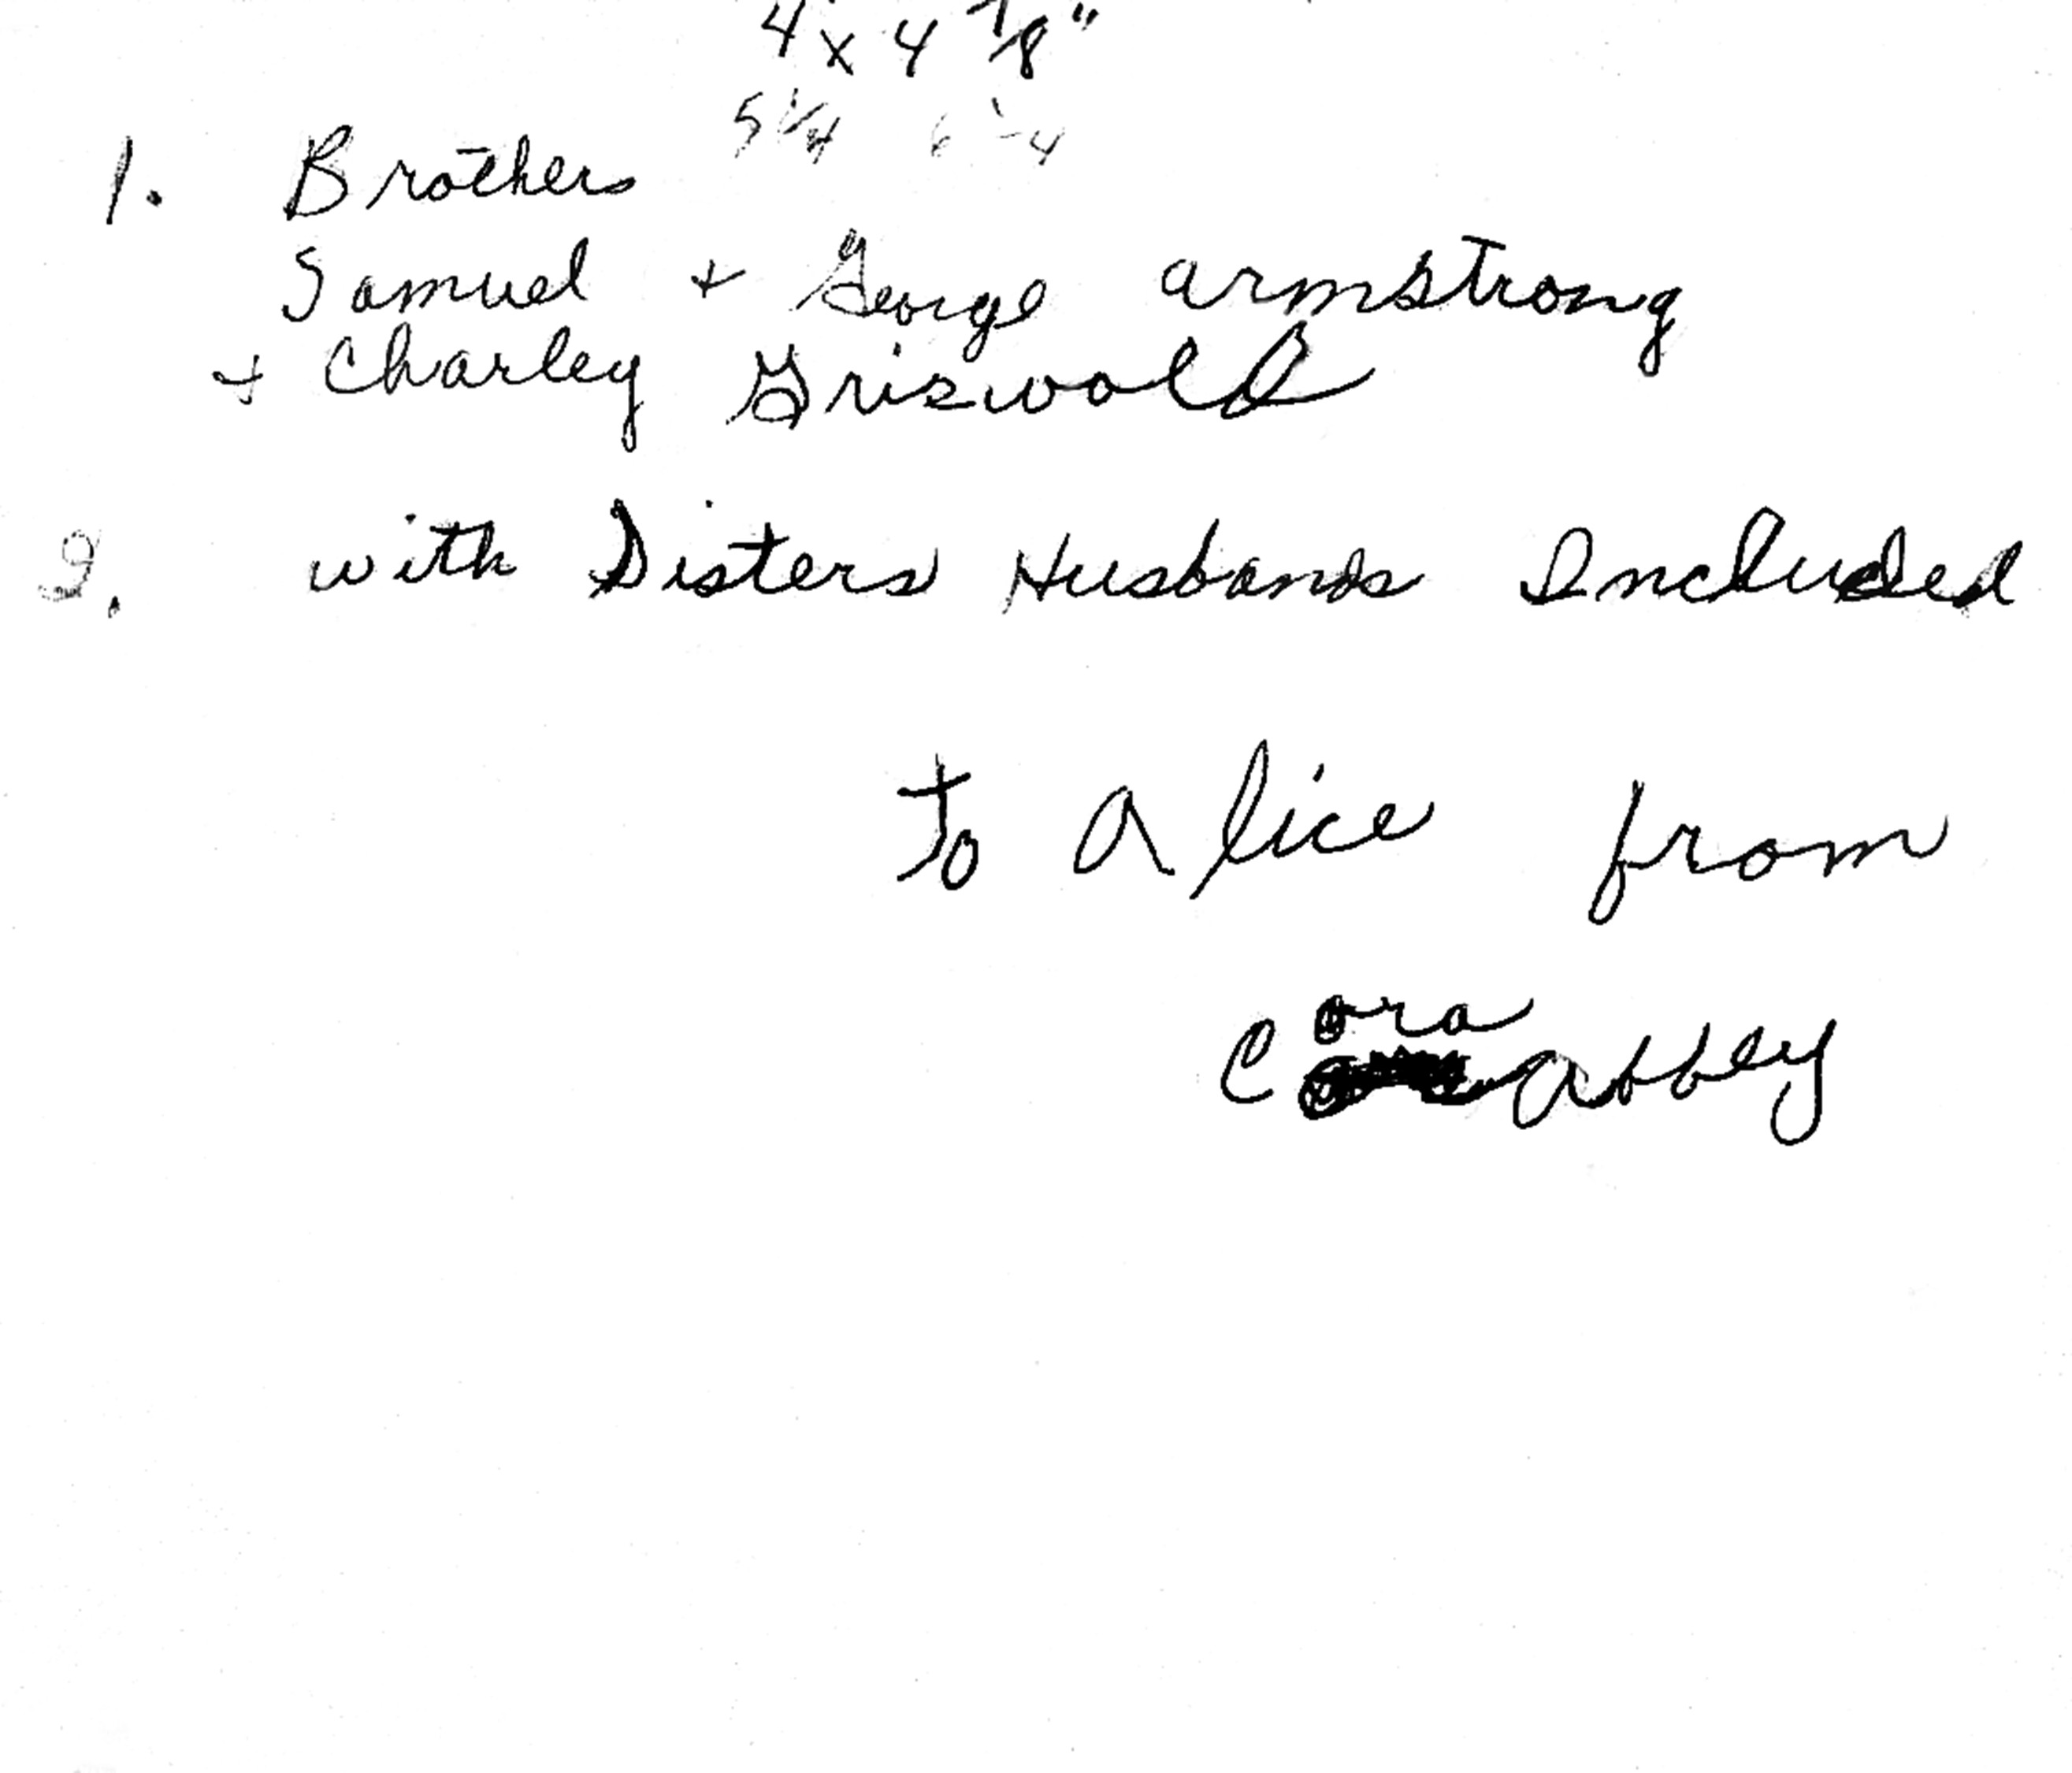 4 x 4 7/8"
5 1/4
1. Brothers
Samuel + George Armstrong
+ Charley Griswold
2. with Sisters Husbands Included
To Alice from
Cora Abbey